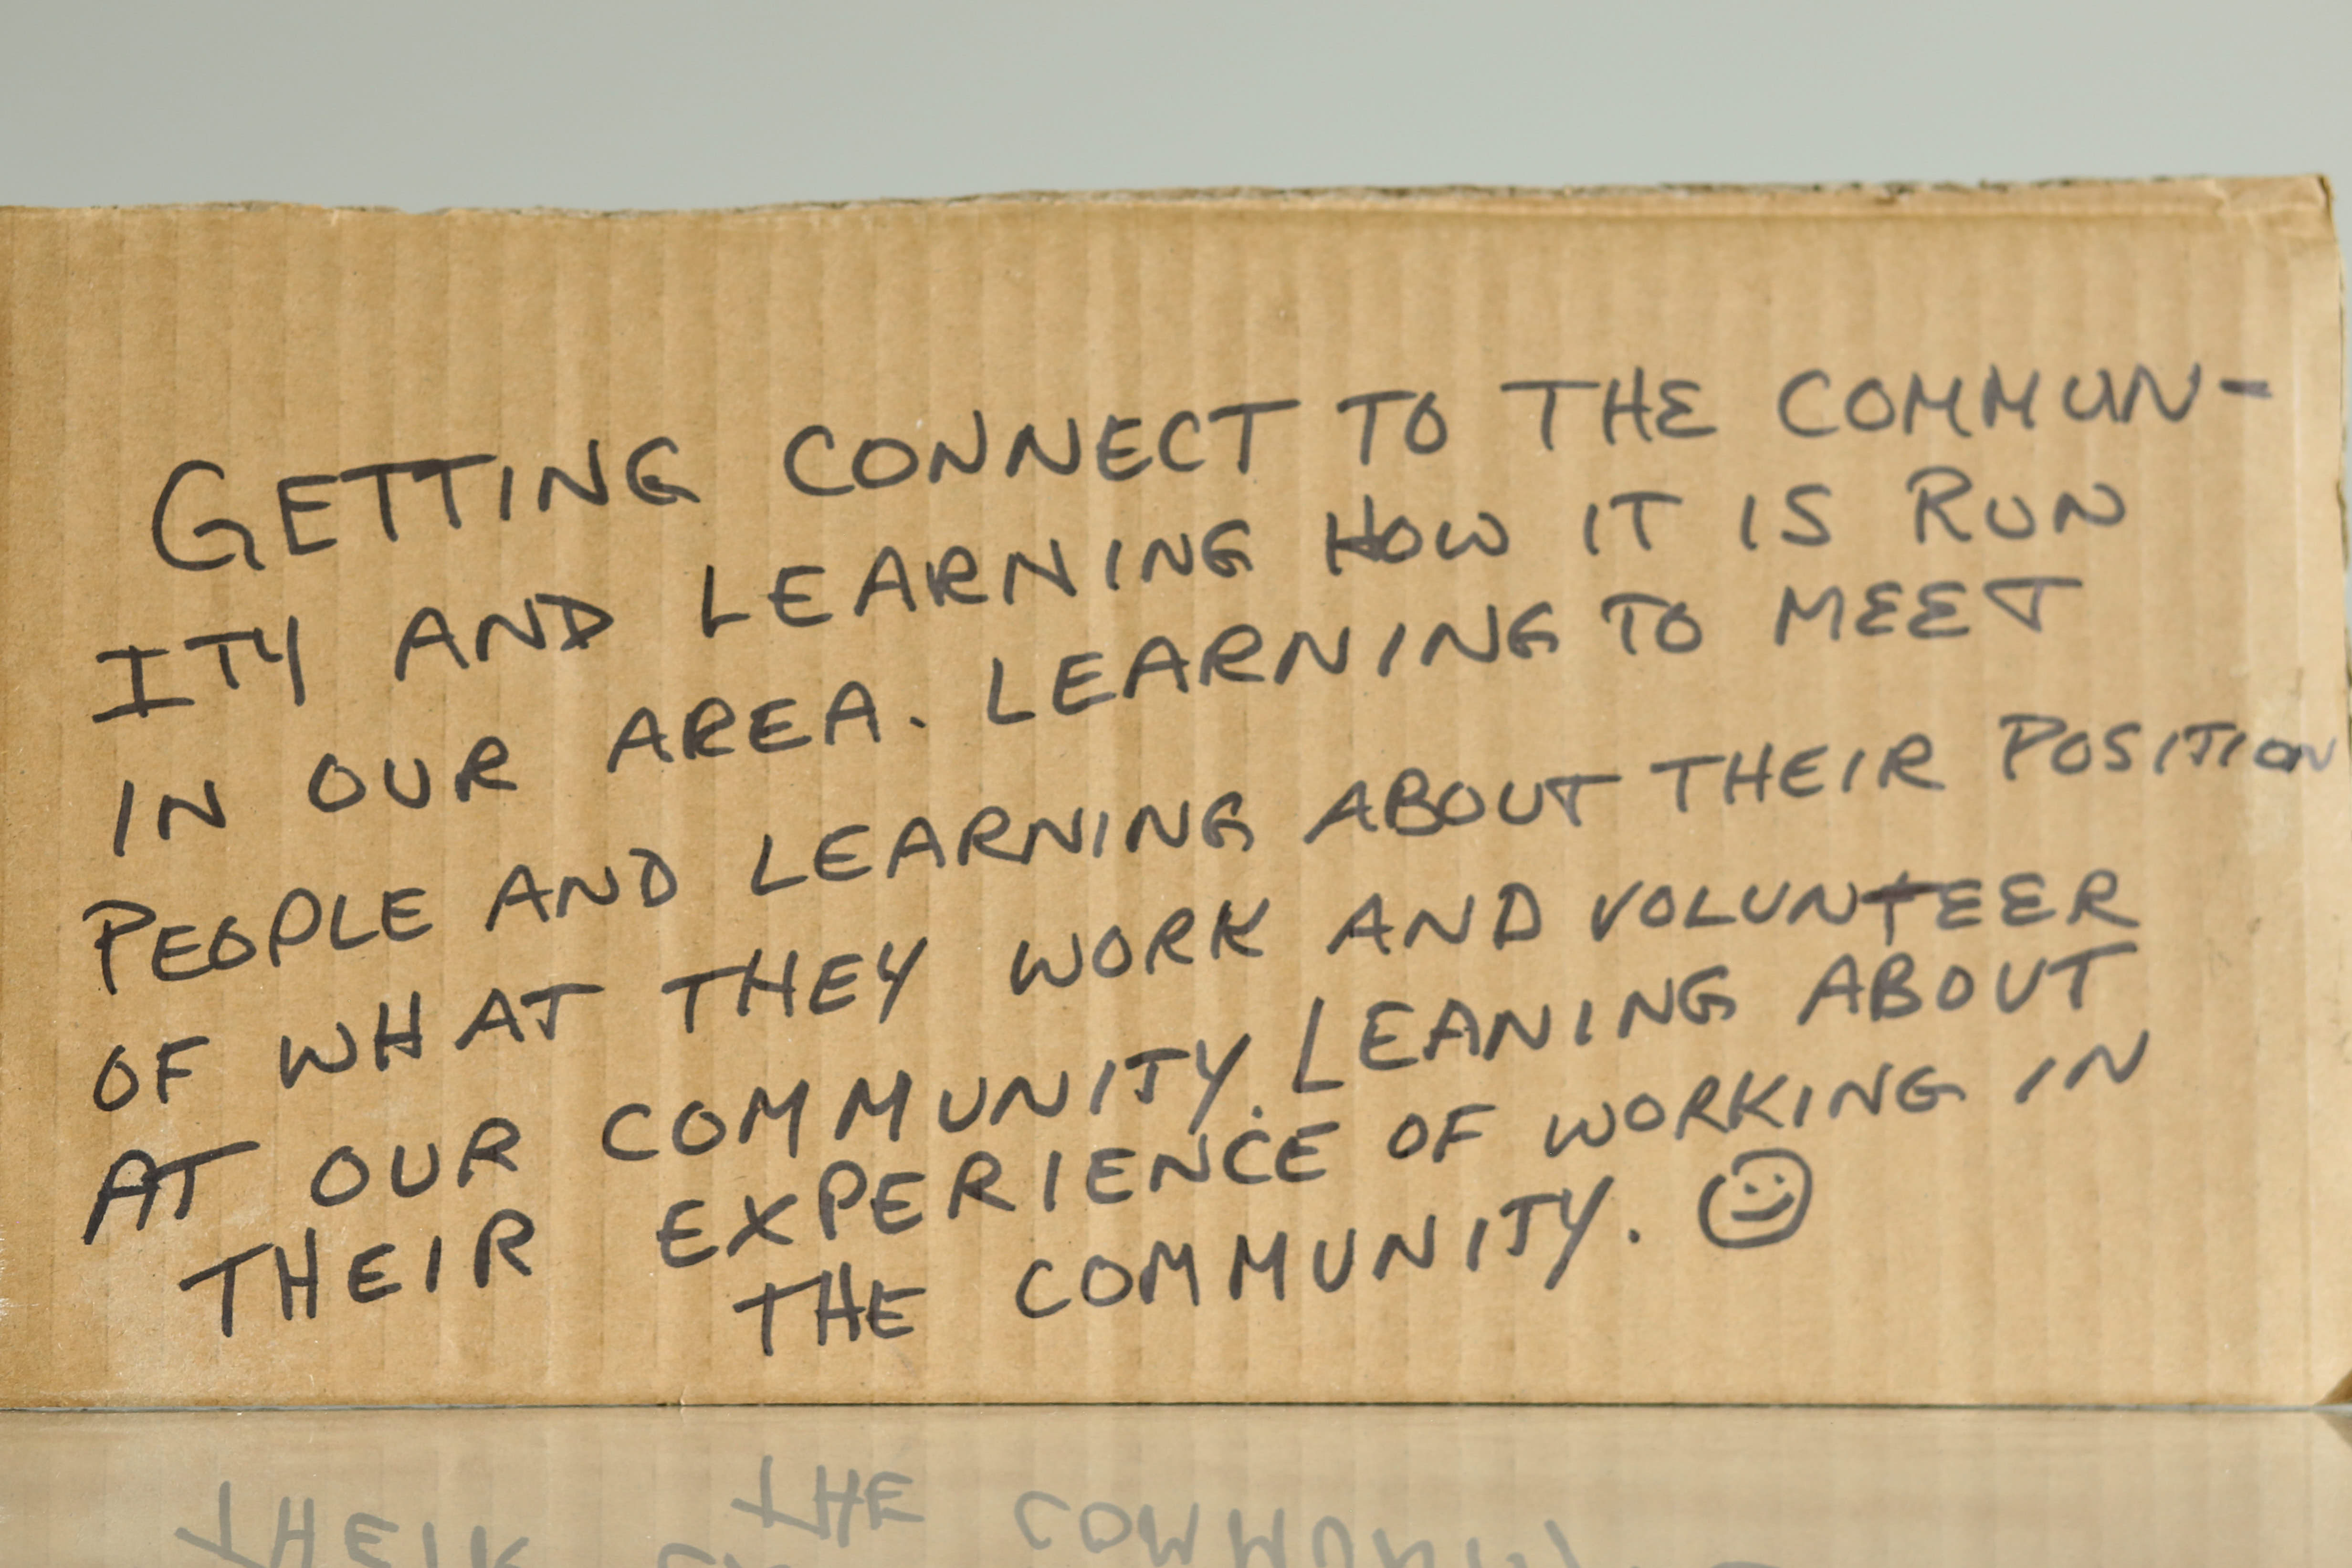 GETTING CONNECT TO THE COMMUN-
ITY AND LEARNING HOW IT IS RUN
IN OUR AREA. LEARNING TO MEET
PEOPLE AND LEARNING ABOUT THEIR POSITION
OF WHAT THEY WORK AND VOLUNTEER
AT OUR COMMUNITY. LEANING ABOUT
THEIR EXPERIENCE OF WORKING IN
THE COMMUNITY.